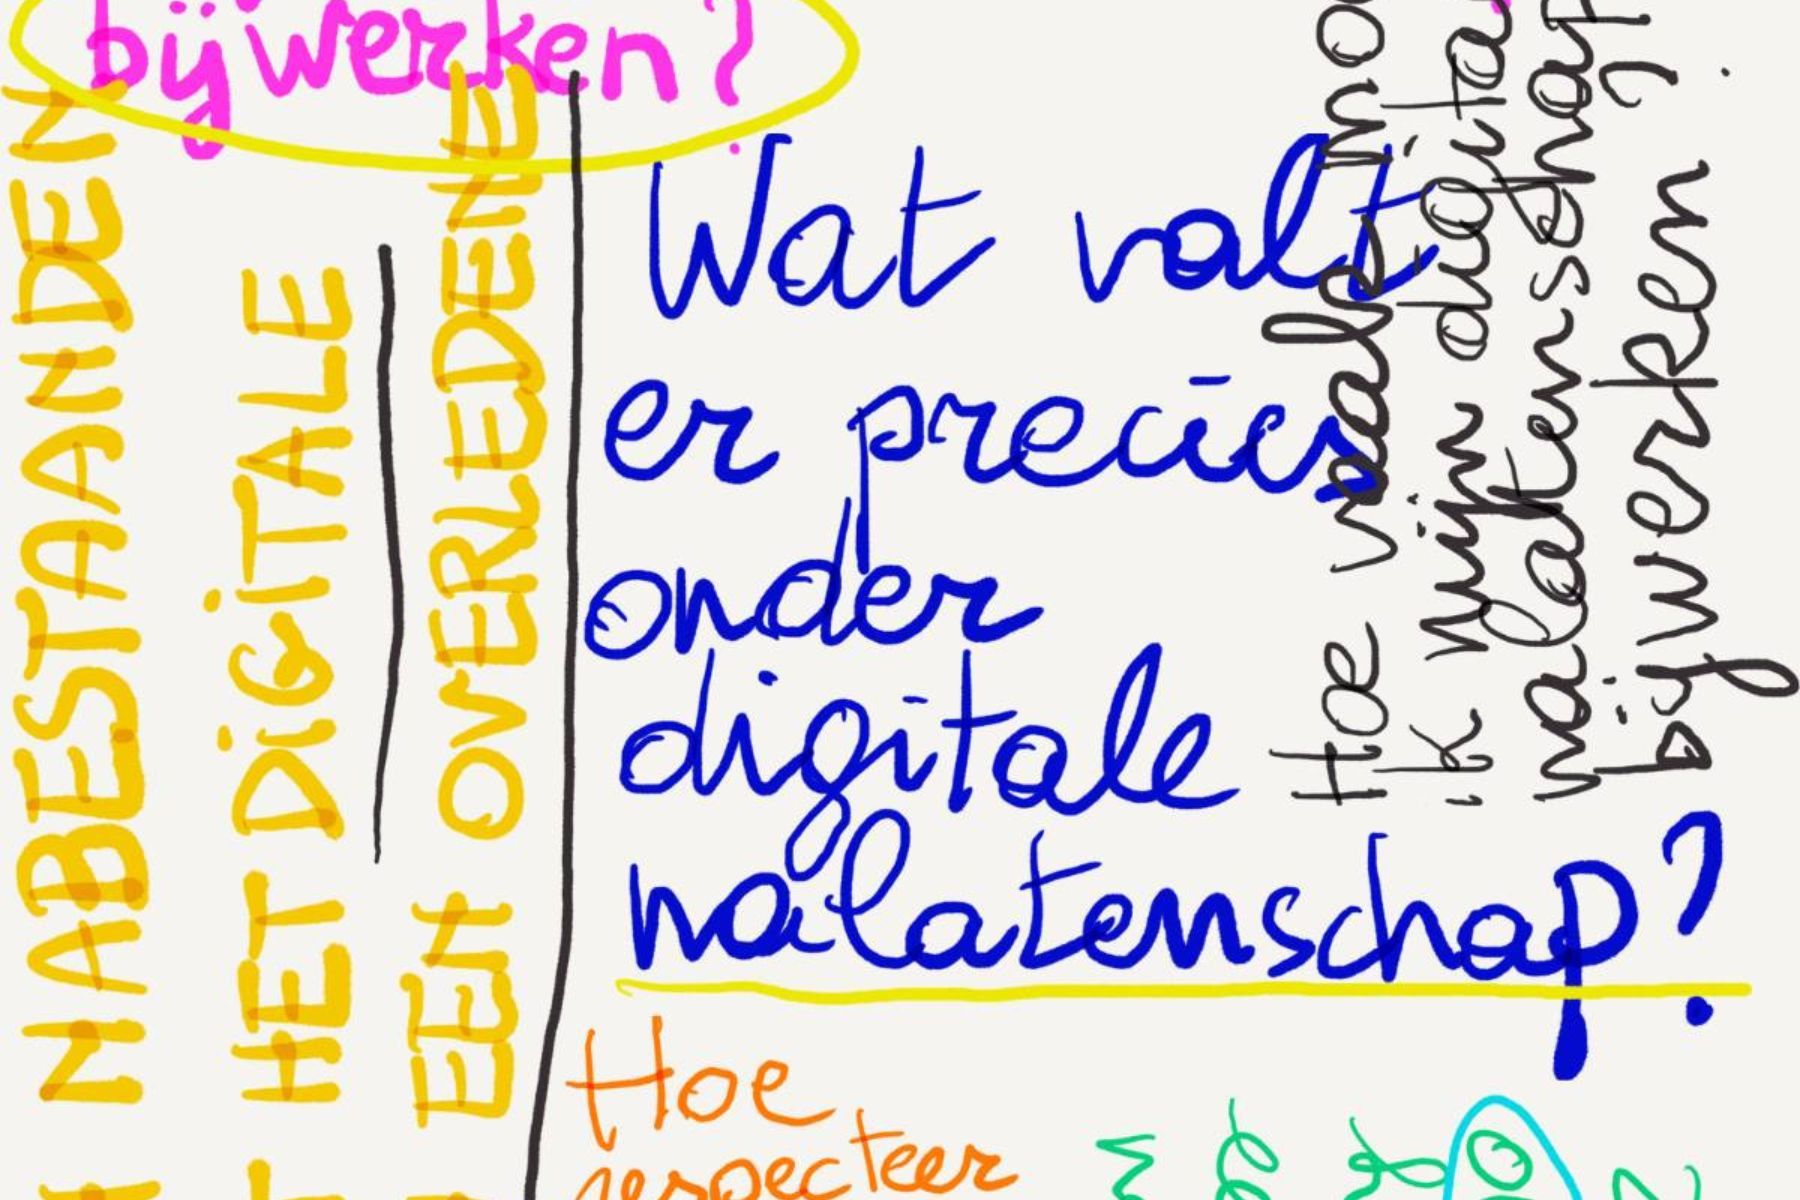 bijwerken?
NABESTAANDEN
HET DiGiTALE
EEN OVERLEDENE
Wat valt
er precies
onder
digitale
nalatenschap?
Hoe vaak
ik mijn digita
nalatenschap
bijwerken?
Hoe
respecteer